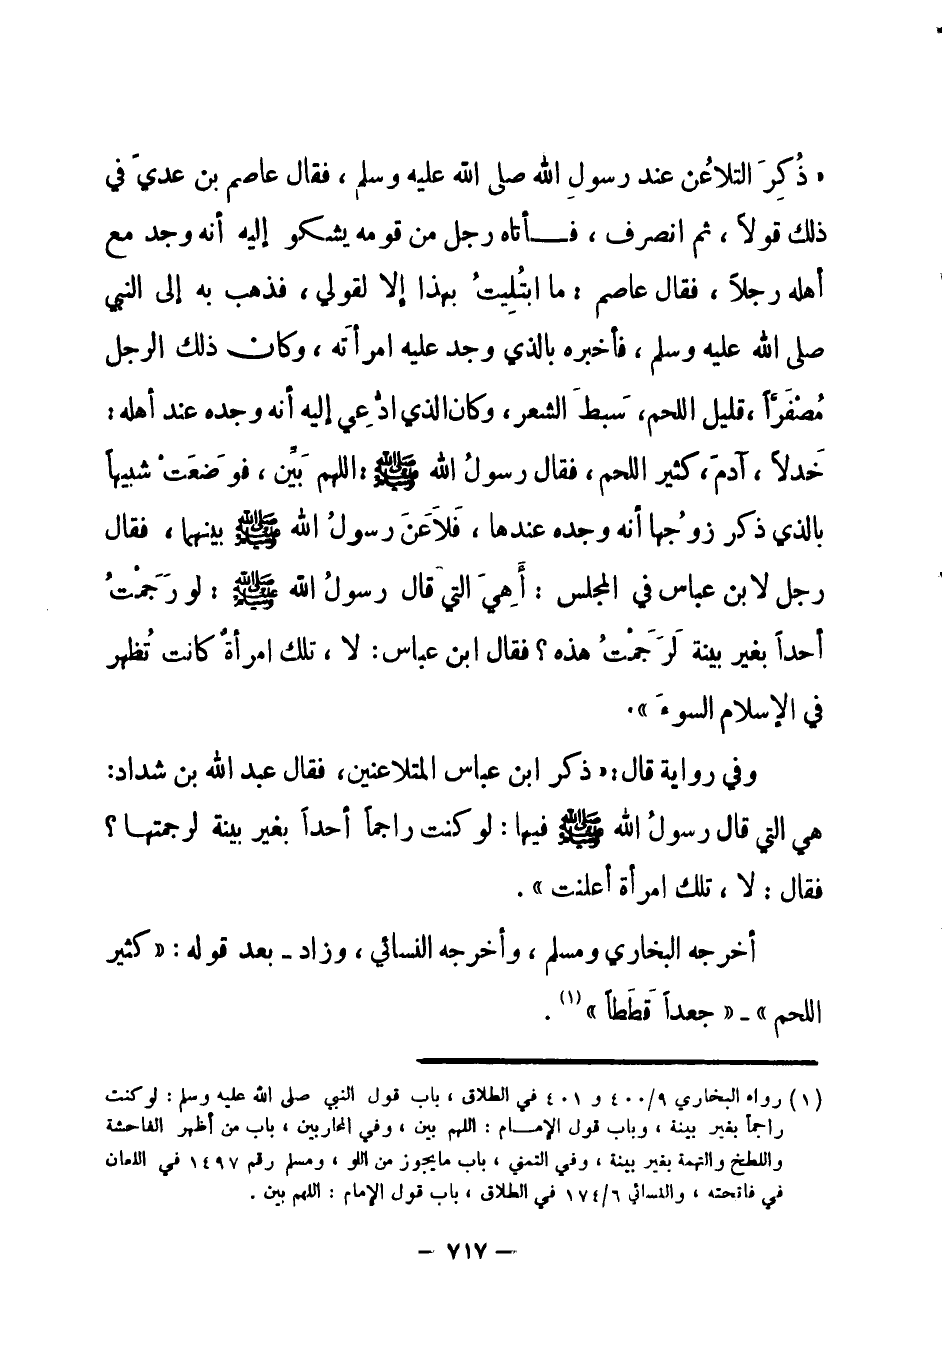 « ذُكِرَ التلاعُن عند رسولِ الله صلى الله عليه وسلم ، فقال عاصم بن عديّ في
ذلك قولاً ، ثم انصرف ، فــأتاه رجل من قومه يشكو إليه أنه وجد مع
أهله رجلاً ، فقال عاصم : ما ابتُلِيتُ بهذا إلا لقولي ، فذهب به إلى النبي
صلى الله عليه وسلم ، فأخبره بالذي وجد عليه امرأتَه ، وكان ذلك الرجل
مُصْفَرَّاً ، قليل اللحم، سَبطَ الشعر، وكان الذي ادُّعِي إليه أنه وجده عند أهله :
خَدلاً ، آدمَ، كثير اللحم ، فقال رسولُ الله ﷺ : اللهم بَيِّن ، فوَضعَتْ شبيهاً
بالذي ذكر زوجُها أنه وجده عندها ، فَلاَعَنَ رسولُ الله ﷺ بينهما ، فقال
رجل لابن عباس في المجلس : أَهِيَ التي قال رسولُ الله ﷺ : لو رَجَمْتُ
أحداً بغير بينة لَرَجَمْتُ هذه ؟ فقال ابن عباس : لا ، تلك امرأةٌ كانت تُظهر
في الإسلام السوءَ ».
وفي رواية قال : « ذكر ابن عباس المتلاعنين، فقال عبد الله بن شداد:
هي التي قال رسولُ الله ﷺ فيها : لو كنت راجماً أحداً بغير بينة لرجمتها ؟
فقال : لا ، تلك امرأة أعلنت » .
أخرجه البخاري ومسلم ، وأخرجه النسائي ، وزاد ـ بعد قوله : « كثير
اللحم » ـ « جعداً قَطَطاً » (١) .
(١) رواه البخاري ٤٠٠/٩ و ٤٠١ في الطلاق ، باب قول النبي صلى الله عليه وسلم : لو كنت
راجماً بغير بينة ، وباب قول الإمــام : اللهم بين ، وفي المحاربين ، باب من أظهر الفاحشة
واللطخ والتهمة بغير بينة ، وفي التمني ، باب ما يجوز من اللو ، ومسلم رقم ١٤٩٧ في اللعان
في فاتحته ، والنسائي ١٧٤/٦ في الطلاق ، باب قول الإمام : اللهم بين .
– ٧١٧ –